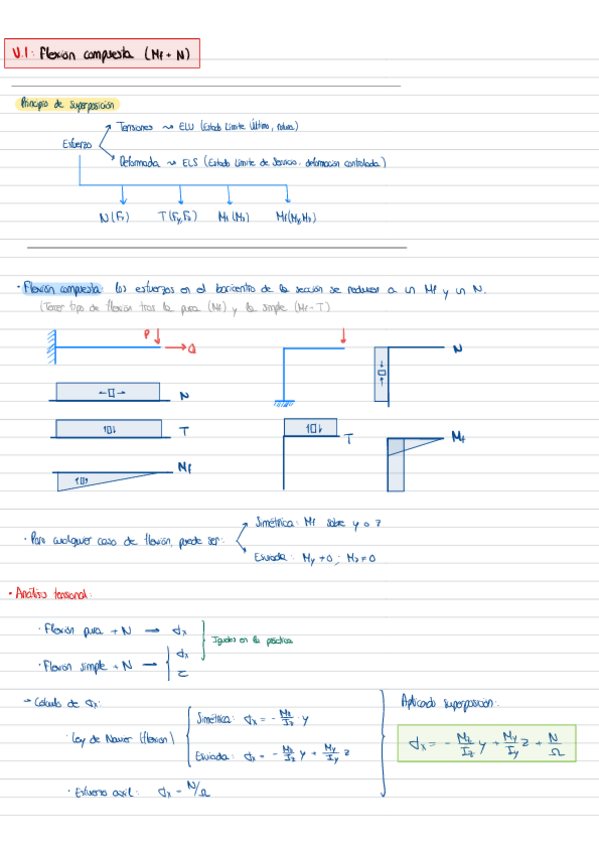 V.1: Flexión compuesta (Mf + N)
Principio de superposición
Tensiones ⇝ ELU (Estado Límite Último, rotura)
Esfuerzo
Deformada ⇝ ELS (Estado Límite de Servicio, deformación controlada)
N (Fx) T (Fy, Fz) Mt (Mx) Mf (My, Mz)
· Flexión compuesta: los esfuerzos en el baricentro de la sección se reducen a un Mf y un N.
(Tercer tipo de flexión tras la pura (Mf) y la simple (Mf - T)
P
Q
N
N
T
T
Mf
Mf
· Para cualquier caso de flexión, puede ser:
Simétrica: Mf sobre y o z
Esviada: My ≠ 0 ; Mz ≠ 0
· Análisis tensional:
· Flexión pura + N → σx
Iguales en la práctica
· Flexión simple + N → σx
τ
→ Cálculo de σx:
Aplicado superposición:
· Ley de Navier (flexión)
Simétrica: σx = - Mz/Iz · y
Esviada: σx = - Mz/Iz y + My/Iy z
σx = - Mz/Iz y + My/Iy z + N/Ω
· Esfuerzo axil: σx = N/Ω